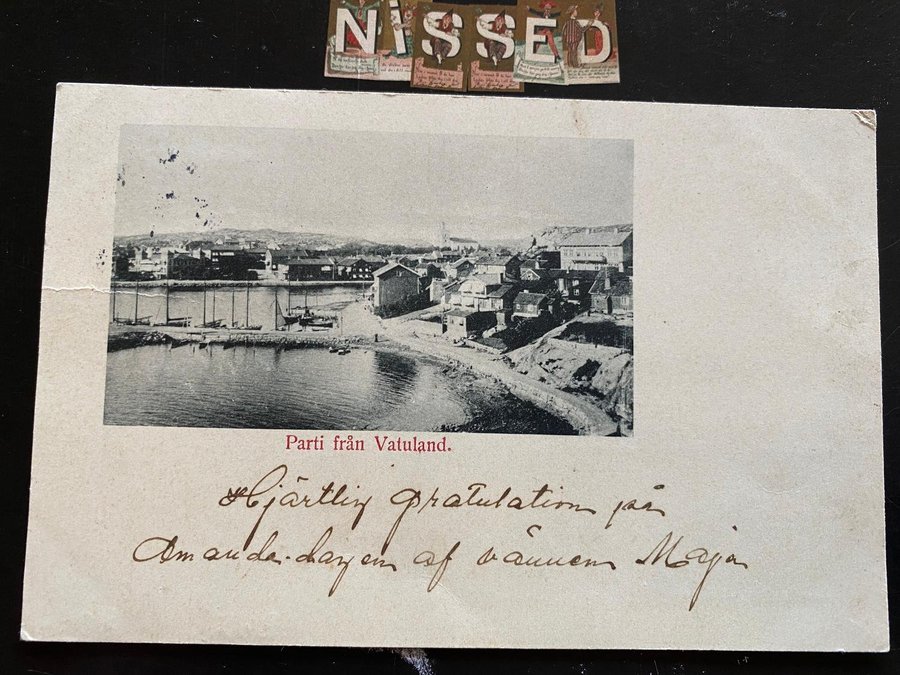 NiSSED
Parti från Vatuland.
Hjärtlig gratulation på
Amanda-dagen af vännen Maja